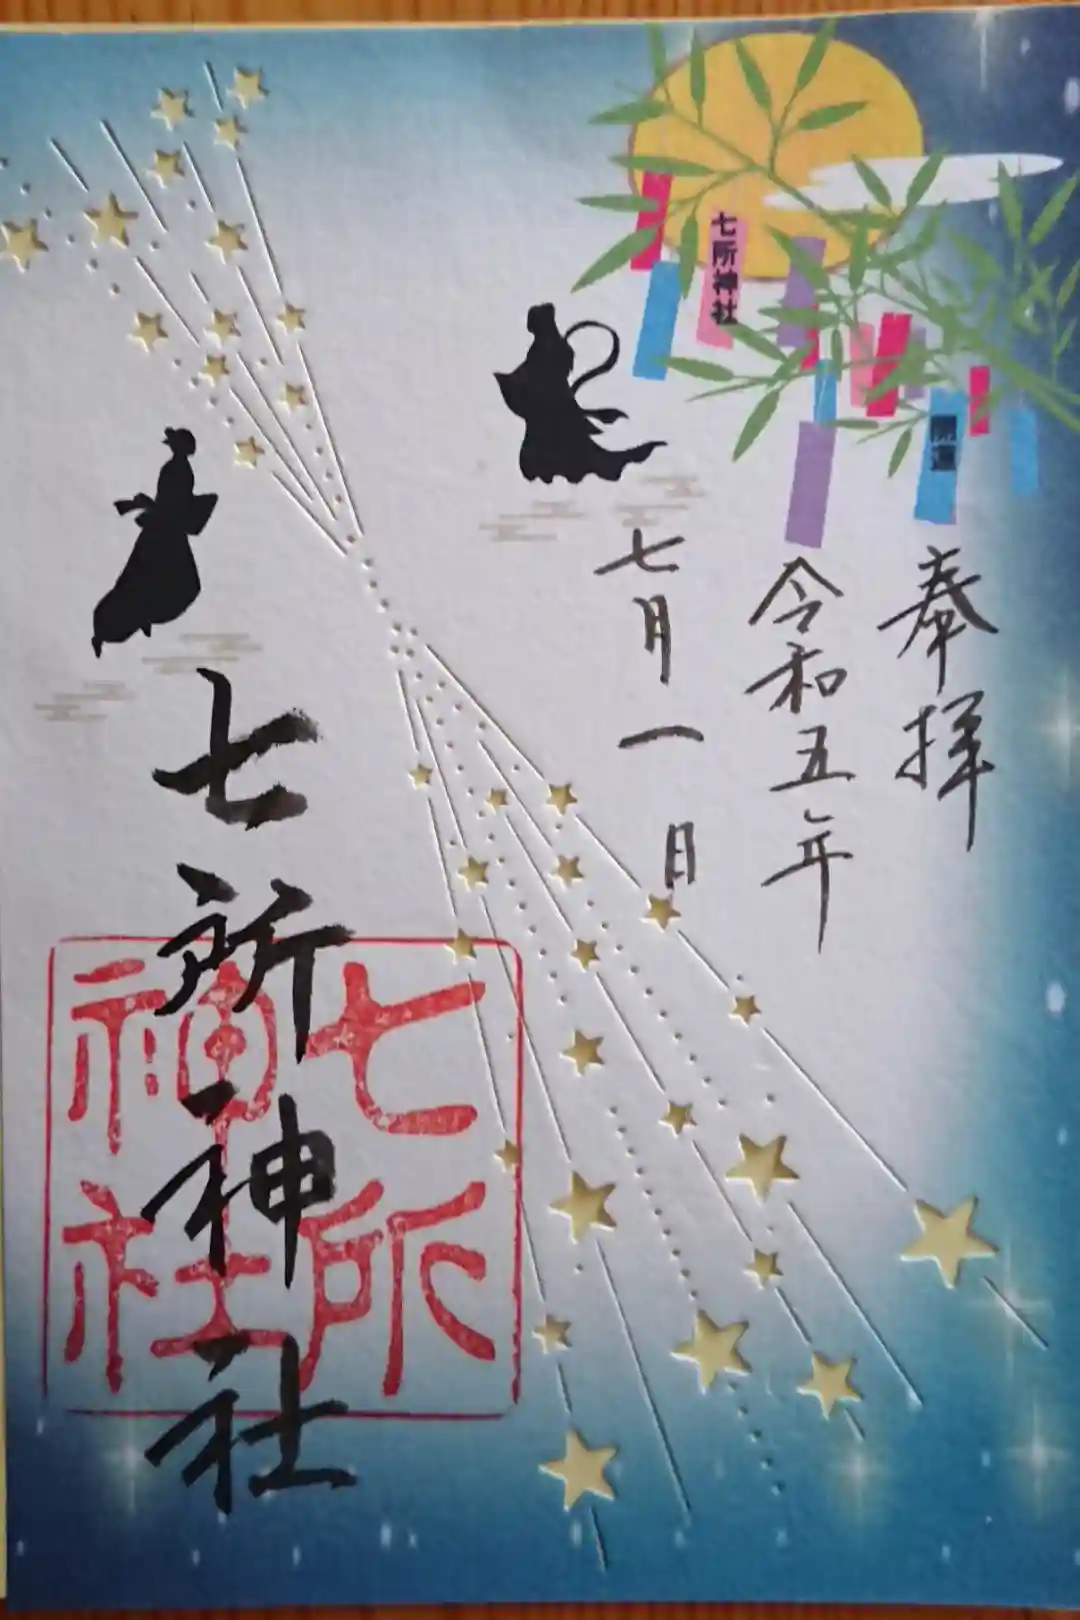 奉拝
令和五年
七月一日
七所神社
七所神社
開運
七所神社